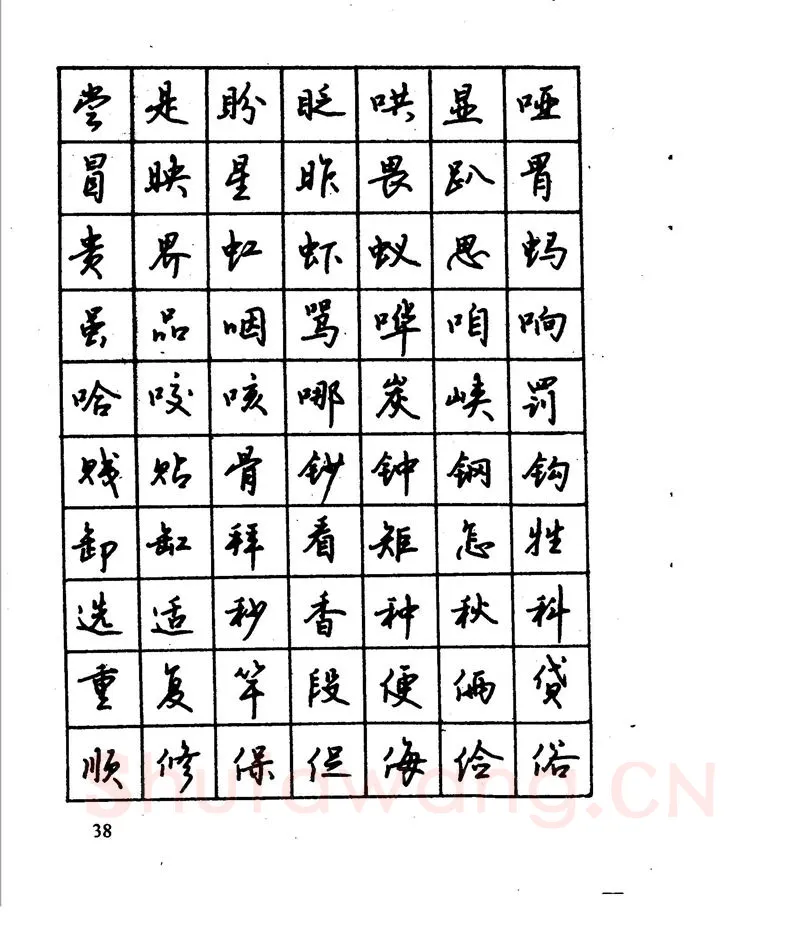 尝是盼眨哄显哑
冒映星昨畏趴胃
贵界虹虾蚁思蚂
虽品咽骂哗咱响
哈咬咳哪炭峡罚
贱贴骨钞钟钢钩
卸缸拜看矩怎牲
选适秒香种秋科
重复竿段便俩贷
顺修保促侮俭俗
38
Shufawang.CN